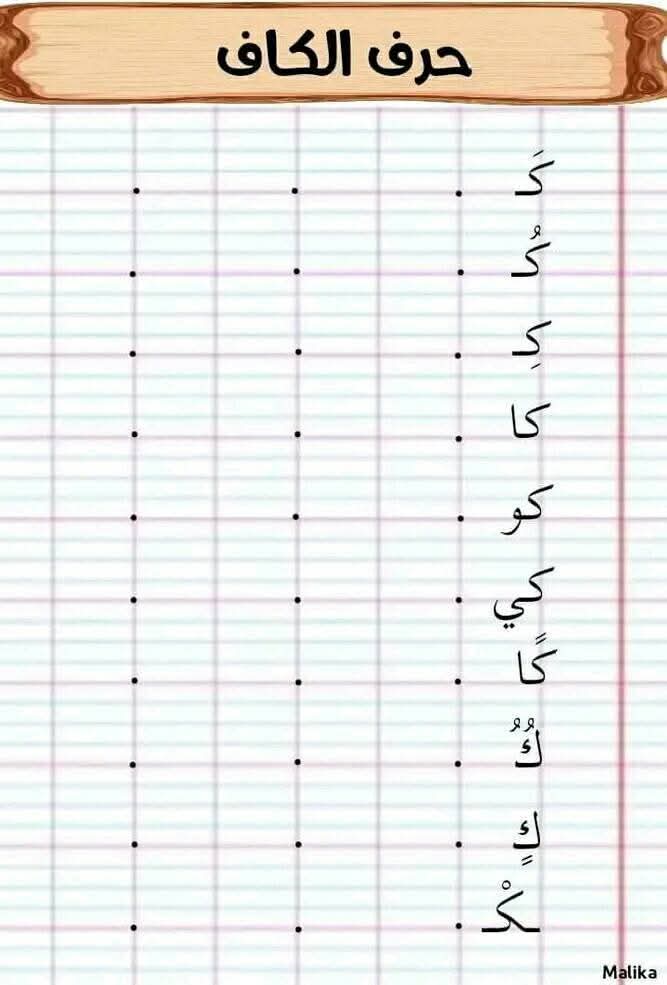 حرف الكاف
كَـ
كُـ
كِـ
كا
كو
كي
كًا
كٌ
كٍ
ـكْـ
Malika